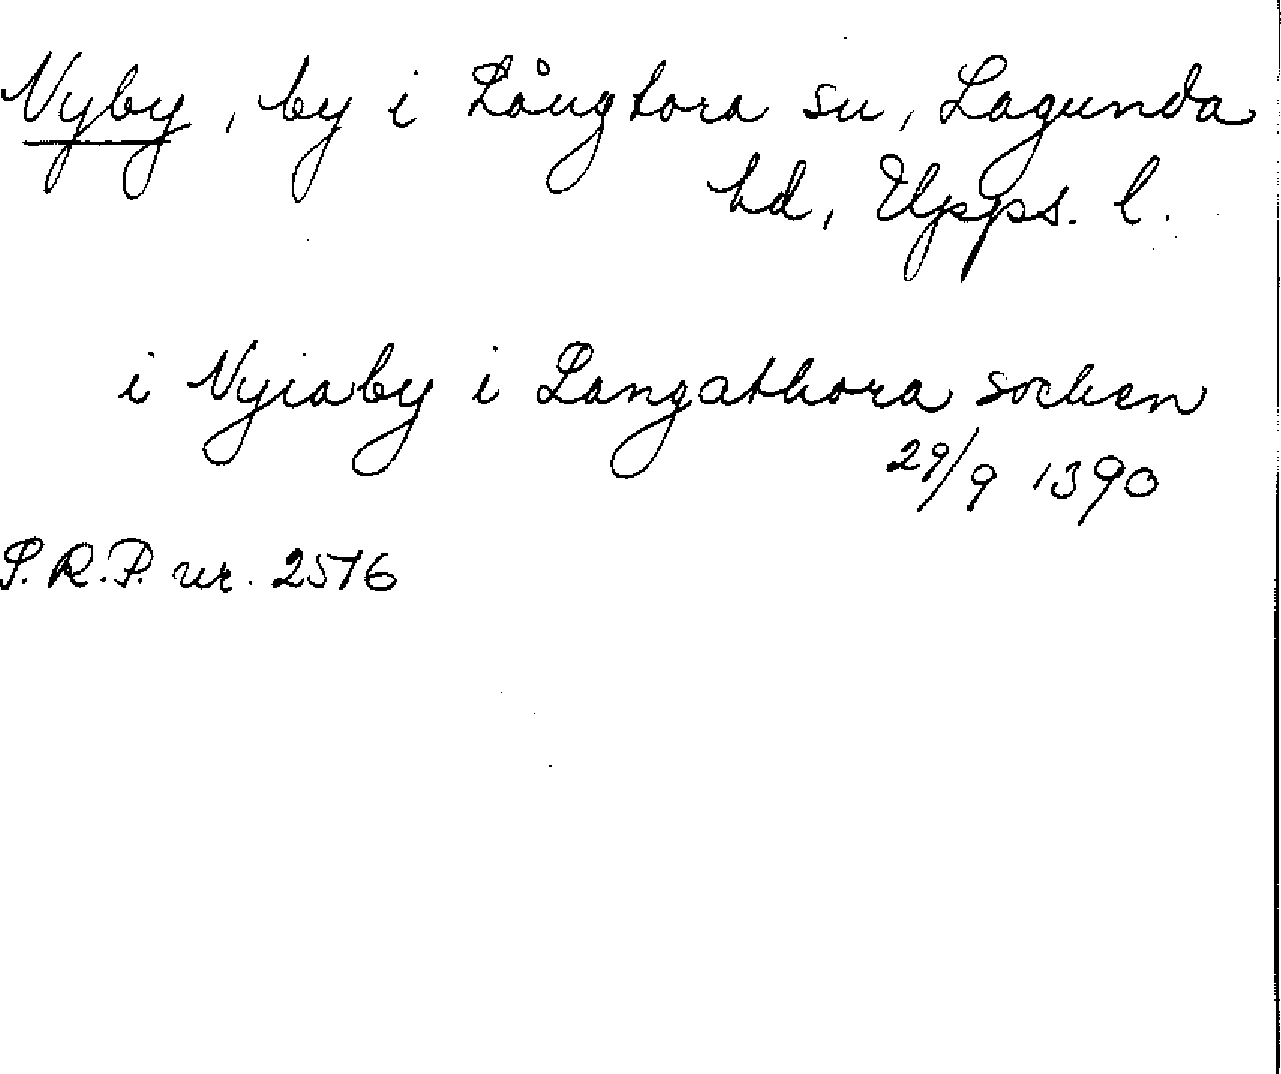 Nyby, by i Långtora sn, Lagunda
hd, Upps. l.
i Nyiaby i Langathora sochen
29/9 1390
S.R.P. nr. 2576